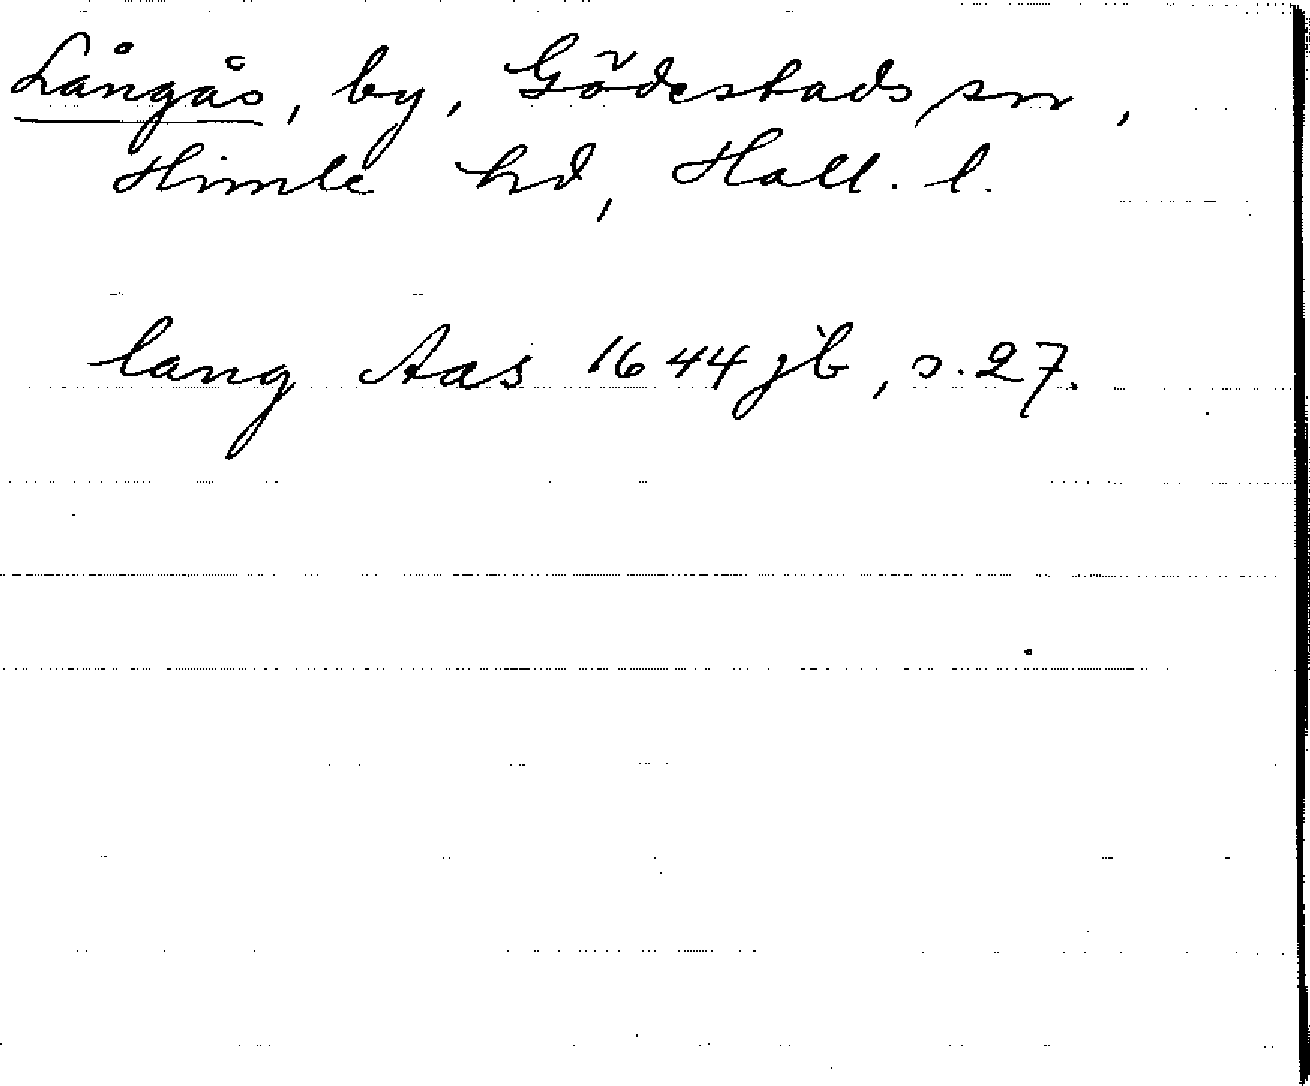 Långås, by, Gödestads sn,
Himle hd, Hall. l.
lang Aas 1644 jb, s. 27.